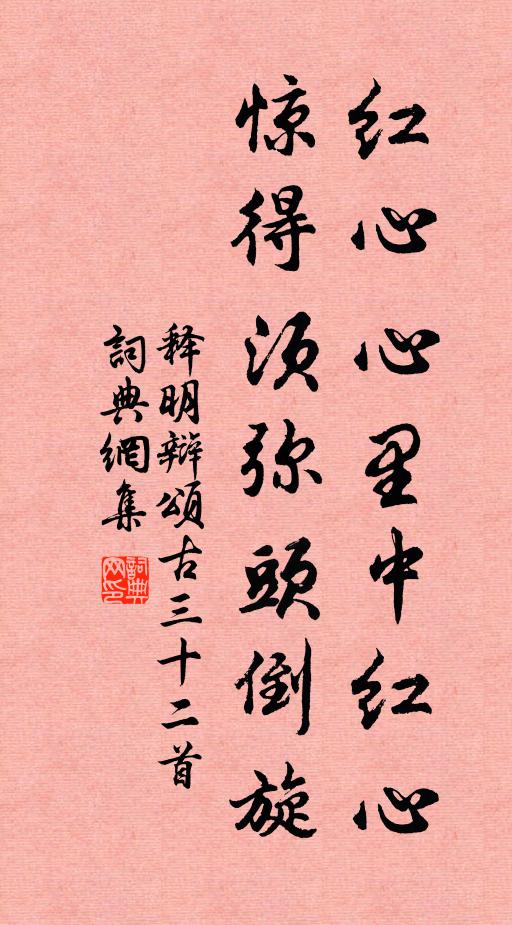 红心心里中红心
惊得须弥头倒旋
释明辩頌古三十二首
詞典網集
詞典网印